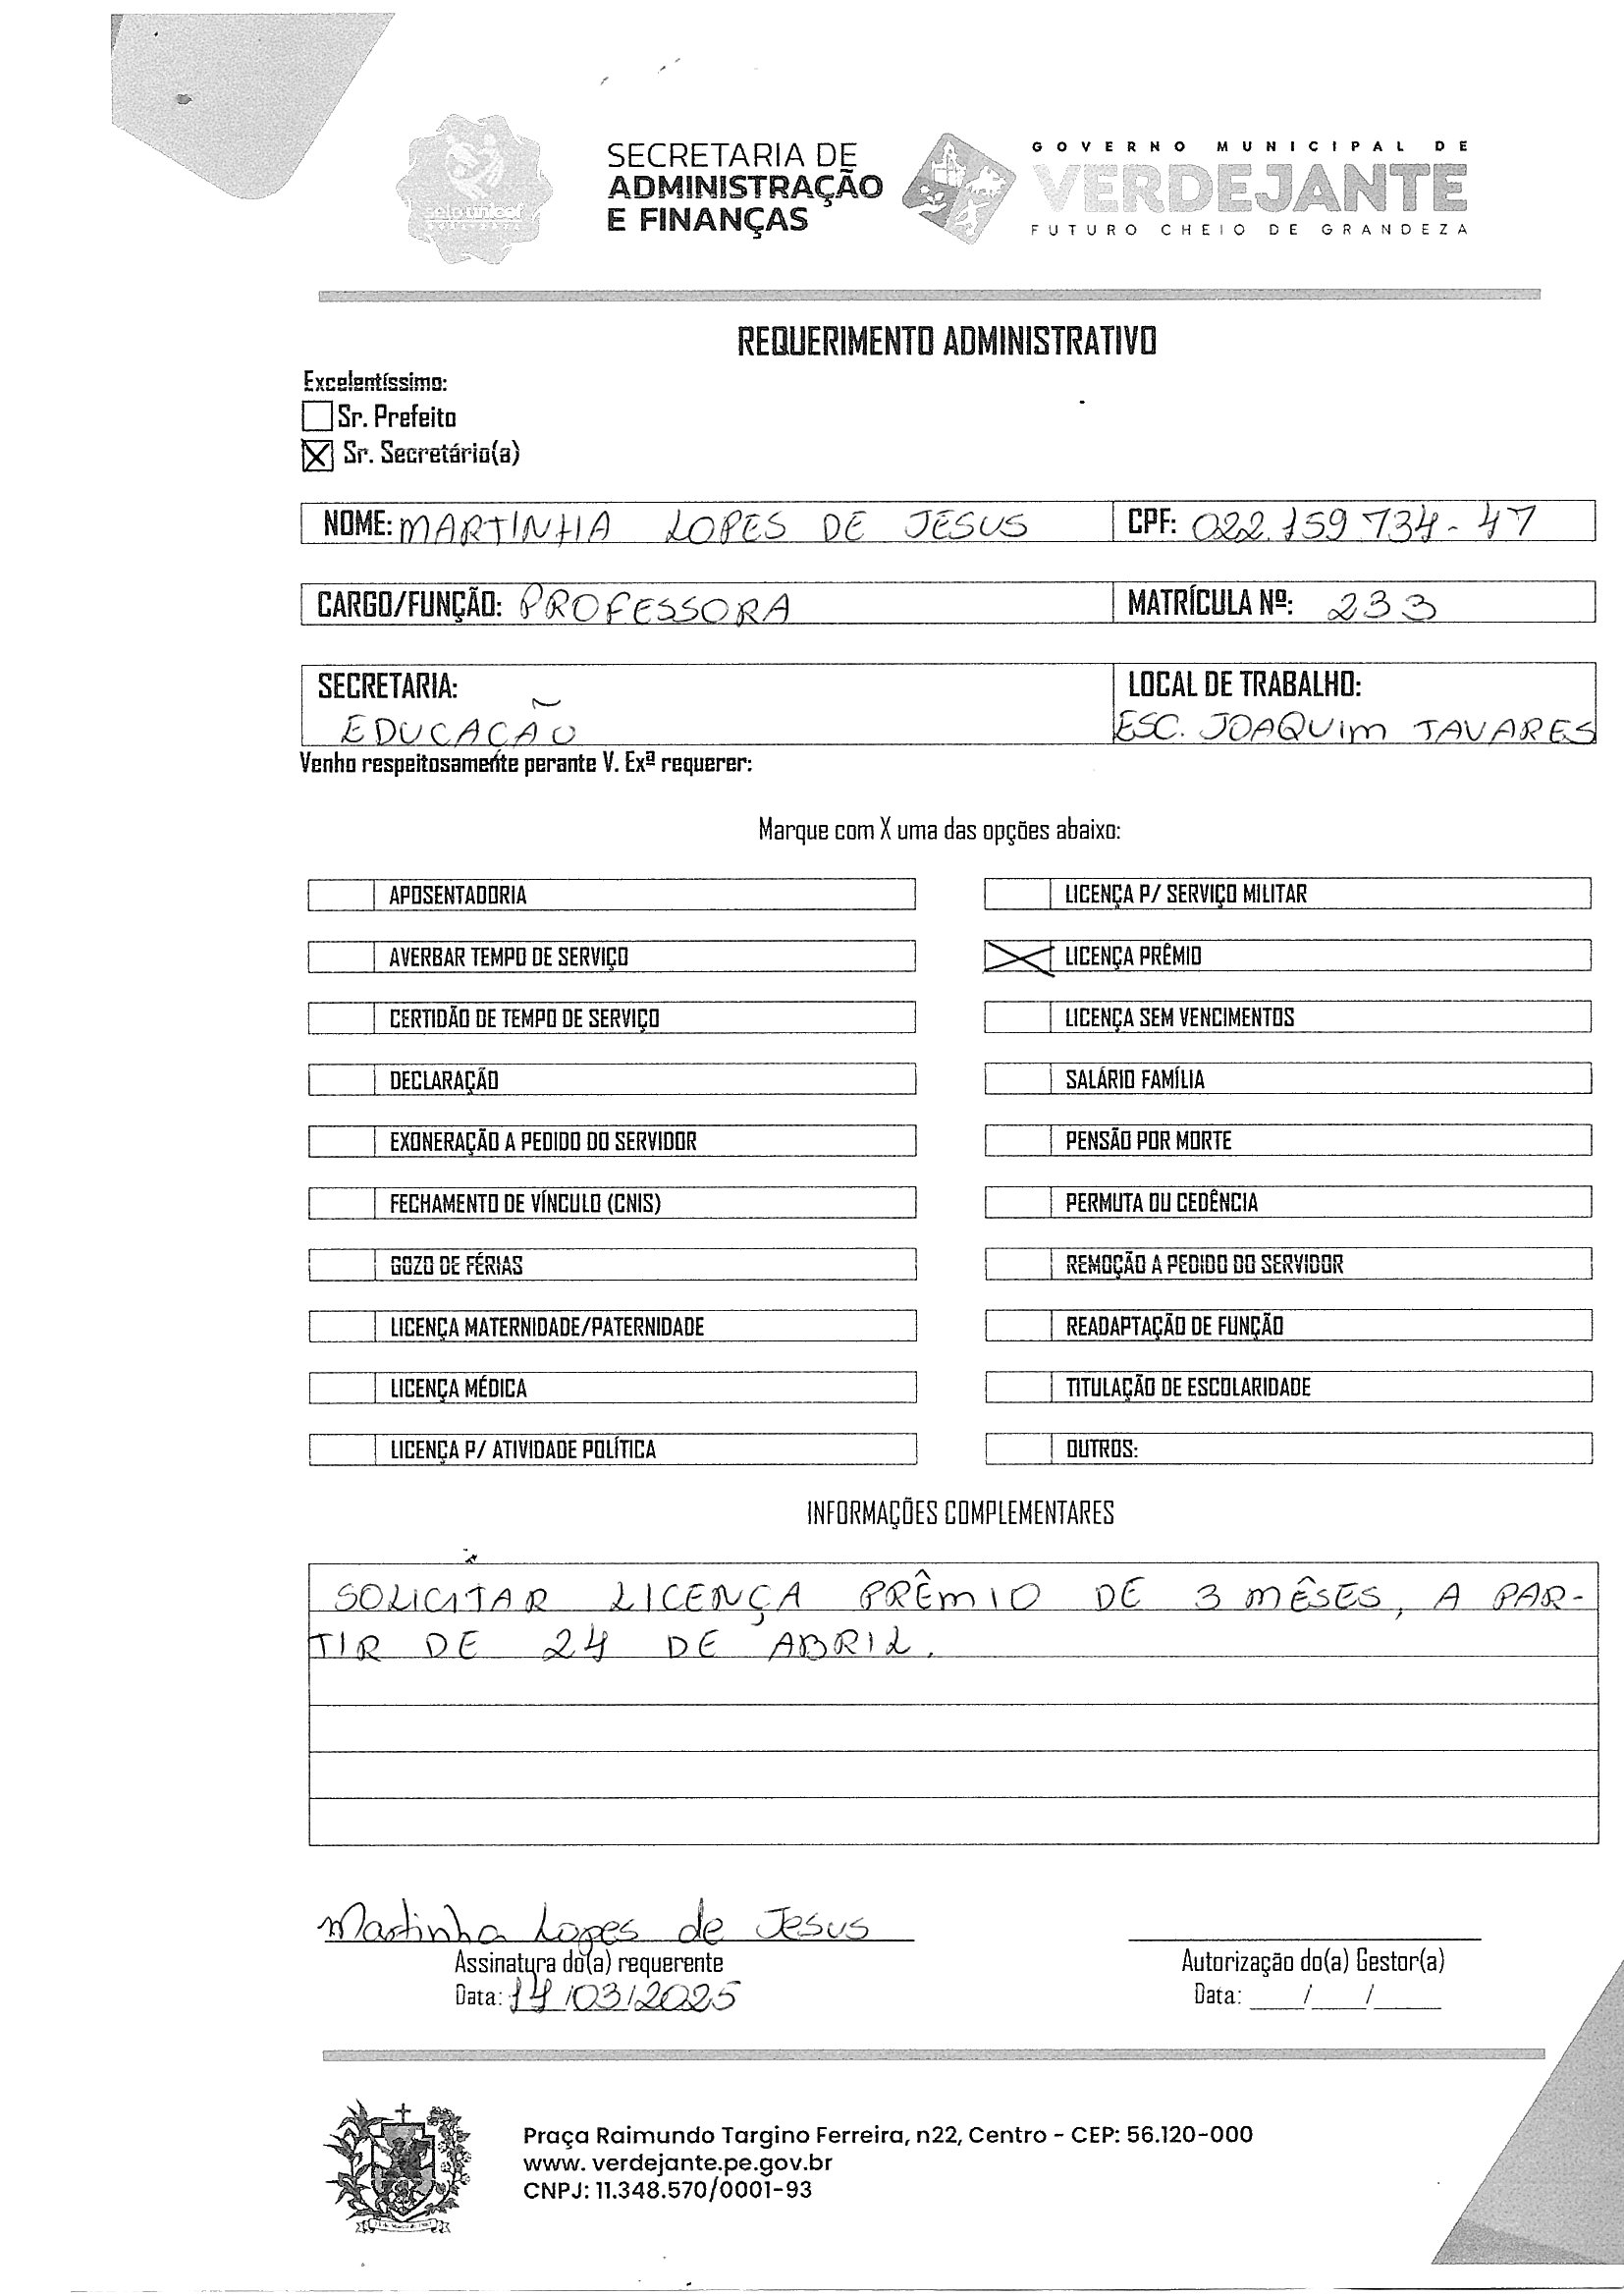 selo unicef
SECRETARIA DE
ADMINISTRAÇÃO
E FINANÇAS
GOVERNO MUNICIPAL DE
VERDEJANTE
FUTURO CHEIO DE GRANDEZA
REQUERIMENTO ADMINISTRATIVO
Excelentíssimo:
Sr. Prefeito
X Sr. Secretário(a)
NOME: MARTINHA LOPES DE JESUS CPF: 022.159734-47
CARGO/FUNÇÃO: PROFESSORA MATRÍCULA Nº: 233
SECRETARIA: LOCAL DE TRABALHO:
EDUCAÇÃO ESC. JOAQUIM TAVARES
Venho respeitosamente perante V. Exª requerer:
Marque com X uma das opções abaixo:
APOSENTADORIA LICENÇA P/ SERVIÇO MILITAR
AVERBAR TEMPO DE SERVIÇO X LICENÇA PRÊMIO
CERTIDÃO DE TEMPO DE SERVIÇO LICENÇA SEM VENCIMENTOS
DECLARAÇÃO SALÁRIO FAMÍLIA
EXONERAÇÃO A PEDIDO DO SERVIDOR PENSÃO POR MORTE
FECHAMENTO DE VÍNCULO (CNIS) PERMUTA OU CEDÊNCIA
GOZO DE FÉRIAS REMOÇÃO A PEDIDO DO SERVIDOR
LICENÇA MATERNIDADE/PATERNIDADE READAPTAÇÃO DE FUNÇÃO
LICENÇA MÉDICA TITULAÇÃO DE ESCOLARIDADE
LICENÇA P/ ATIVIDADE POLÍTICA OUTROS:
INFORMAÇÕES COMPLEMENTARES
SOLICITAR LICENÇA PRÊMIO DE 3 MÊSES, A PAR-
TIR DE 24 DE ABRIL.
Martinha Lopes de Jesus
Assinatura do(a) requerente Autorização do(a) Gestor(a)
Data: 14/03/2025 Data: ____/____/_____
Praça Raimundo Targino Ferreira, n22, Centro - CEP: 56.120-000
www. verdejante.pe.gov.br
CNPJ: 11.348.570/0001-93